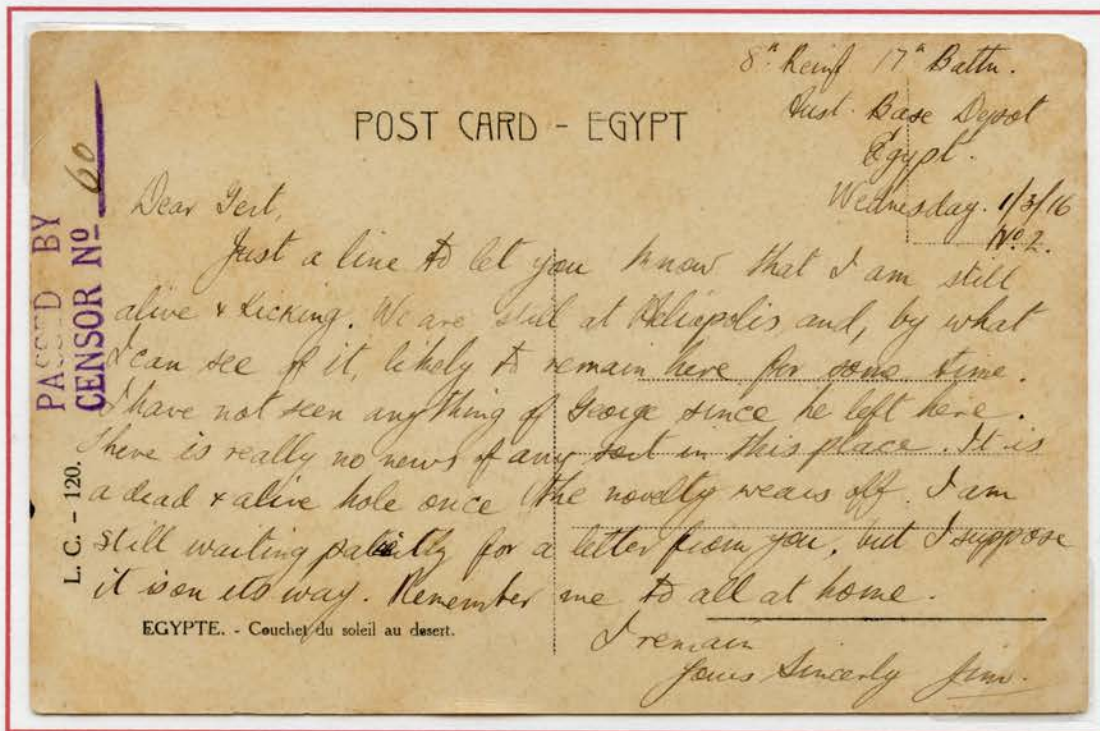 8th Reinf 17th Battn.
Aust. Base Depot
Egypt.
Wednesday. 1/3/16
No. 2.
POST CARD - EGYPT
PASSED BY
CENSOR No 60
L. C. - 120.
Dear Gert,
Just a line to let you know that I am still
alive & kicking. We are still at Heliopolis and, by what
I can see of it, likely to remain here for some time.
I have not seen anything of George since he left here.
There is really no news of any sort in this place. It is
a dead & alive hole once the novelty wears off. I am
still waiting patiently for a letter from you, but I suppose
it is on its way. Remember me to all at home.
I remain
Yours Sincerly Jim.
EGYPTE. - Couchet du soleil au desert.